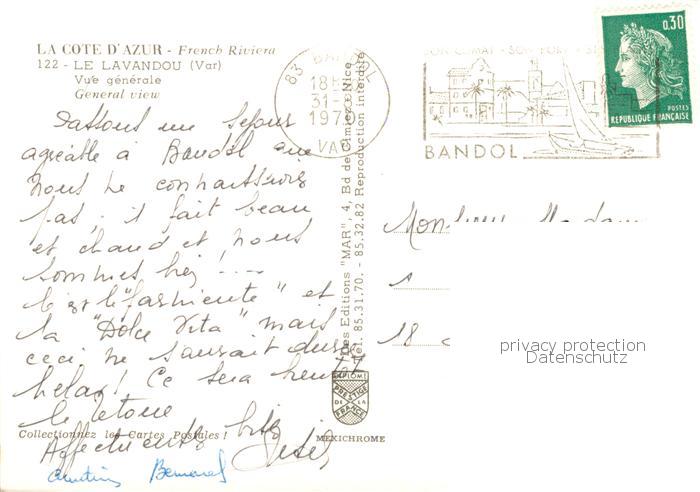 LA COTE D'AZUR - French Riviera
122 - LE LAVANDOU (Var)
Vue générale
General view
Passons un séjour
agréable à Bandol que
nous ne connaissions
pas, il fait beau
et chaud et nous
sommes
le "farniente" et
la "Dolce Vita" mais
ceci ne saurait durer
helas! Ce sera bientôt
le retour
Collectionnez les Cartes Postales !
Affectueuses bises
Bernard
83 BANDOL
18H
31-
VAR
Les Editions "MAR", 4, Bd de Cimiez, Nice
Tel. 85.31.70. - 85.32.82 Reproduction interdite
DIPLOME
PRESTIGE
DE LA
FRANCE
MEXICHROME
SON CLIMAT - SON PORT -
BANDOL
0,30
POSTES
REPUBLIQUE FRANÇAISE
Monsieur Madame
18
privacy protection
Datenschutz